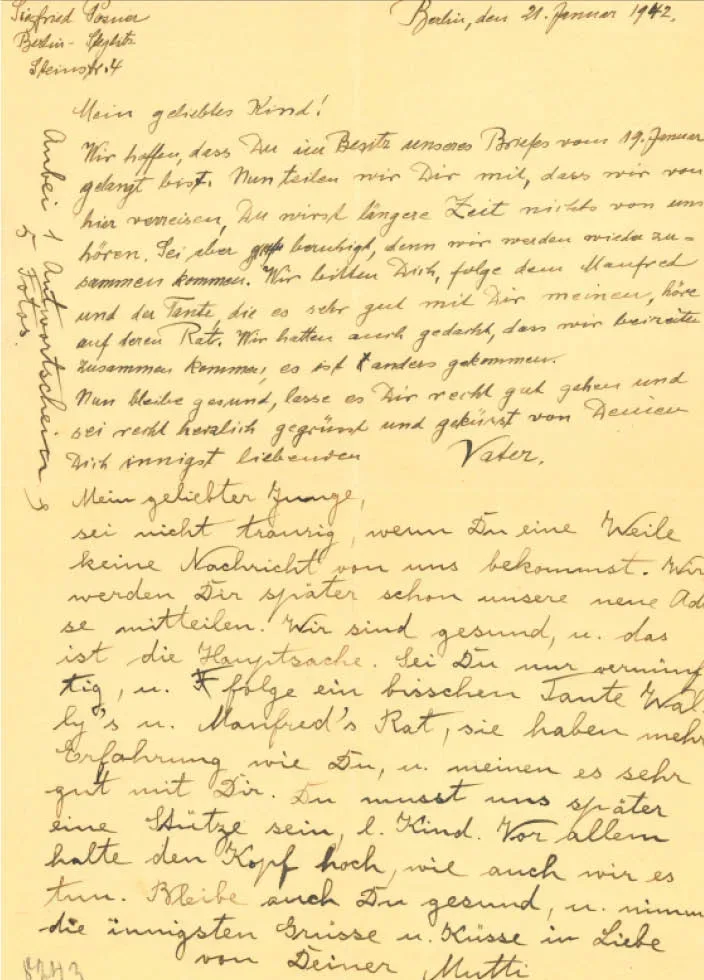 Siegfried Posner
Berlin - Steglitz
Steinstr. 4
Berlin, den 21. Januar 1942.
Mein geliebtes Kind!
Wir hoffen, dass Du im Besitz unseres Briefes vom 19. Januar
gelangt bist. Nun teilen wir Dir mit, dass wir von
hier verreisen, Du wirst längere Zeit nichts von uns
hören. Sei aber beruhigt, denn wir werden wieder zu-
sammen kommen. Wir bitten Dich, folge dem Manfred
und der Tante, die es sehr gut mit Dir meinen, höre
auf deren Rat. Wir hatten auch gedacht, dass wir beizeiten
zusammen kommen, es ist anders gekommen.
Nun bleibe gesund, lasse es Dir recht gut gehen und
sei recht herzlich gegrüsst und geküsst von Deinem
Dich innigst liebenden Vater.
Mein geliebter Junge,
sei nicht traurig, wenn Du eine Weile
keine Nachricht von uns bekommst. Wir
werden Dir später schon unsere neue Ad
se mitteilen. Wir sind gesund, u. das
ist die Hauptsache. Sei Du nur vernünf
tig, u. folge ein bisschen Tante Wal-
ly's u. Manfred's Rat, sie haben mehr
Erfahrung wie Du, u. meinen es sehr
gut mit Dir. Du musst uns später
eine Stütze sein, l. Kind. Vor allem
halte den Kopf hoch, wie auch wir es
tun. Bleibe auch Du gesund, u. nimm
die innigsten Grüsse u. Küsse in Liebe
von Deiner Mutti
Anbei 1 Antwortschein
5 Fotos.
8243